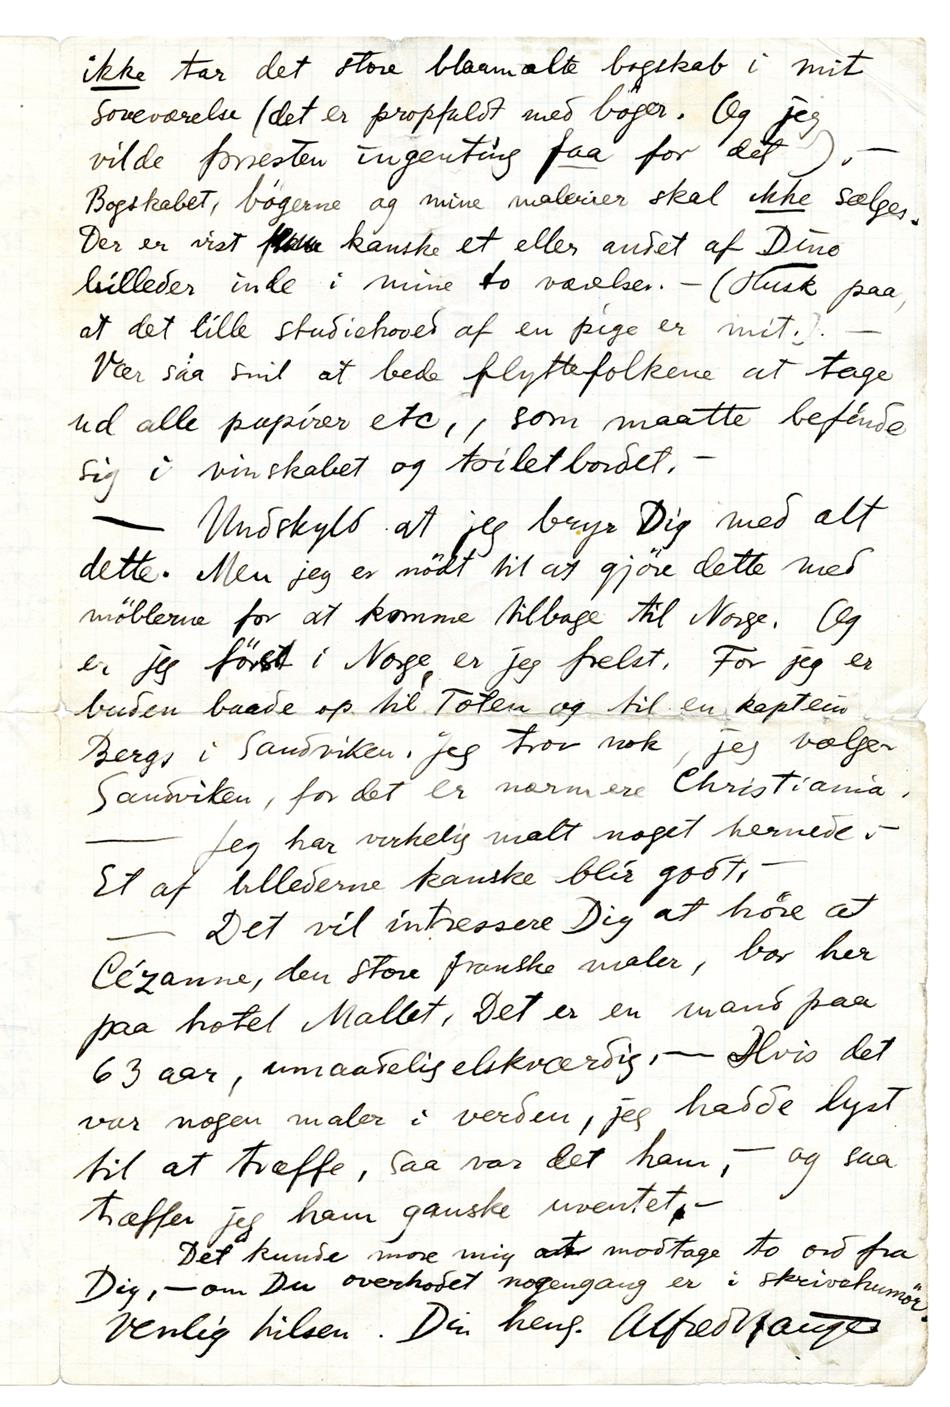 ikke tar det store blaamalte bogskab i mit
soveværelse (det er propfuldt med bøger. Og jeg
vilde forresten ingenting faa for det). —
Bogskabet, bøgerne og mine malerier skal ikke sælges.
Der er vist kanske et eller andet af Dine
billeder inde i mine to værelser. — (Husk paa,
at det lille studiehoved af en pige er mit.). —
Vær saa snil at bede flyttefolkene at tage
ud alle papirer etc,, som maatte befinde
sig i vinskabet og toiletbordet. —
— Undskyld at jeg bryr Dig med alt
dette. Men jeg er nödt til at gjöre dette med
möblerne for at komme tilbage til Norge. Og
er jeg först i Norge, er jeg frelst. For jeg er
buden baade op til Toten og til en kaptein
Bergs i Sandviken. Jeg tror nok, jeg vælger
Sandviken, for det er nærmere Christiania.
— Jeg har virkelig malt noget hernede. —
Et af billederne kanske blir godt. —
— Det vil intressere Dig at höre at
Cézanne, den store franske maler, bor her
paa hotel Mallet. Det er en mand paa
63 aar, umaadelig elskværdig. — Hvis det
var nogen maler i verden, jeg hadde lyst
til at træffe, saa var det ham, — og saa
træffer jeg ham ganske uventet. —
Det kunde more mig at modtage to ord fra
Dig, — om Du overhodet nogengang er i skrivehumör.
Venlig hilsen. Din heng. Alfred Hauge